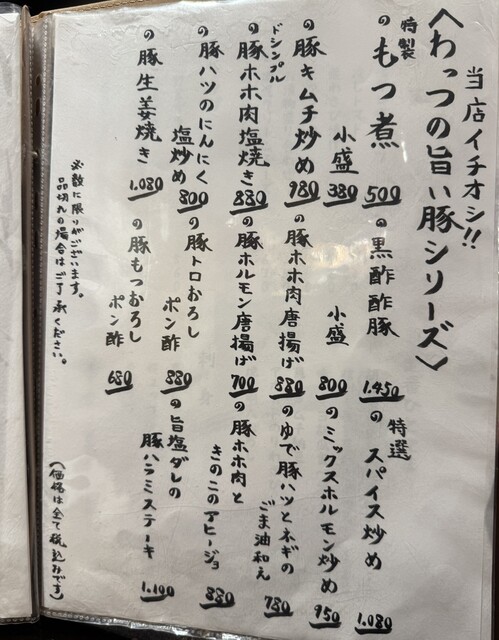 当店イチオシ!!
〈わっつの旨い豚シリーズ〉
の特製
もつ煮 500
小盛 380
の豚キムチ炒め 980
ドシンプル
の豚ホホ肉塩焼き 880
の豚ハツのにんにく
塩炒め 800
の豚生姜焼き 1.080
の黒酢酢豚 1.450
小盛 800
の豚ホホ肉唐揚げ 880
の豚ホルモン唐揚げ 700
の豚トロおろし
ポン酢 880
の豚もつおろし
ポン酢 680
の特選
スパイス炒め 1.080
のミックスホルモン炒め 950
のゆで豚ハツとネギの
ごま油和え 780
の豚ホホ肉と
きのこのアヒージョ 880
の旨塩ダレの
豚ハラミステーキ 1.100
※数に限りがございます。
品切れの場合はご了承ください。
(価格は全て税込みです)